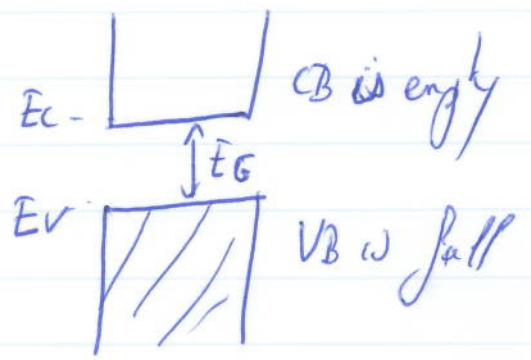 Ec - CB is empty
EG
Ev VB is full